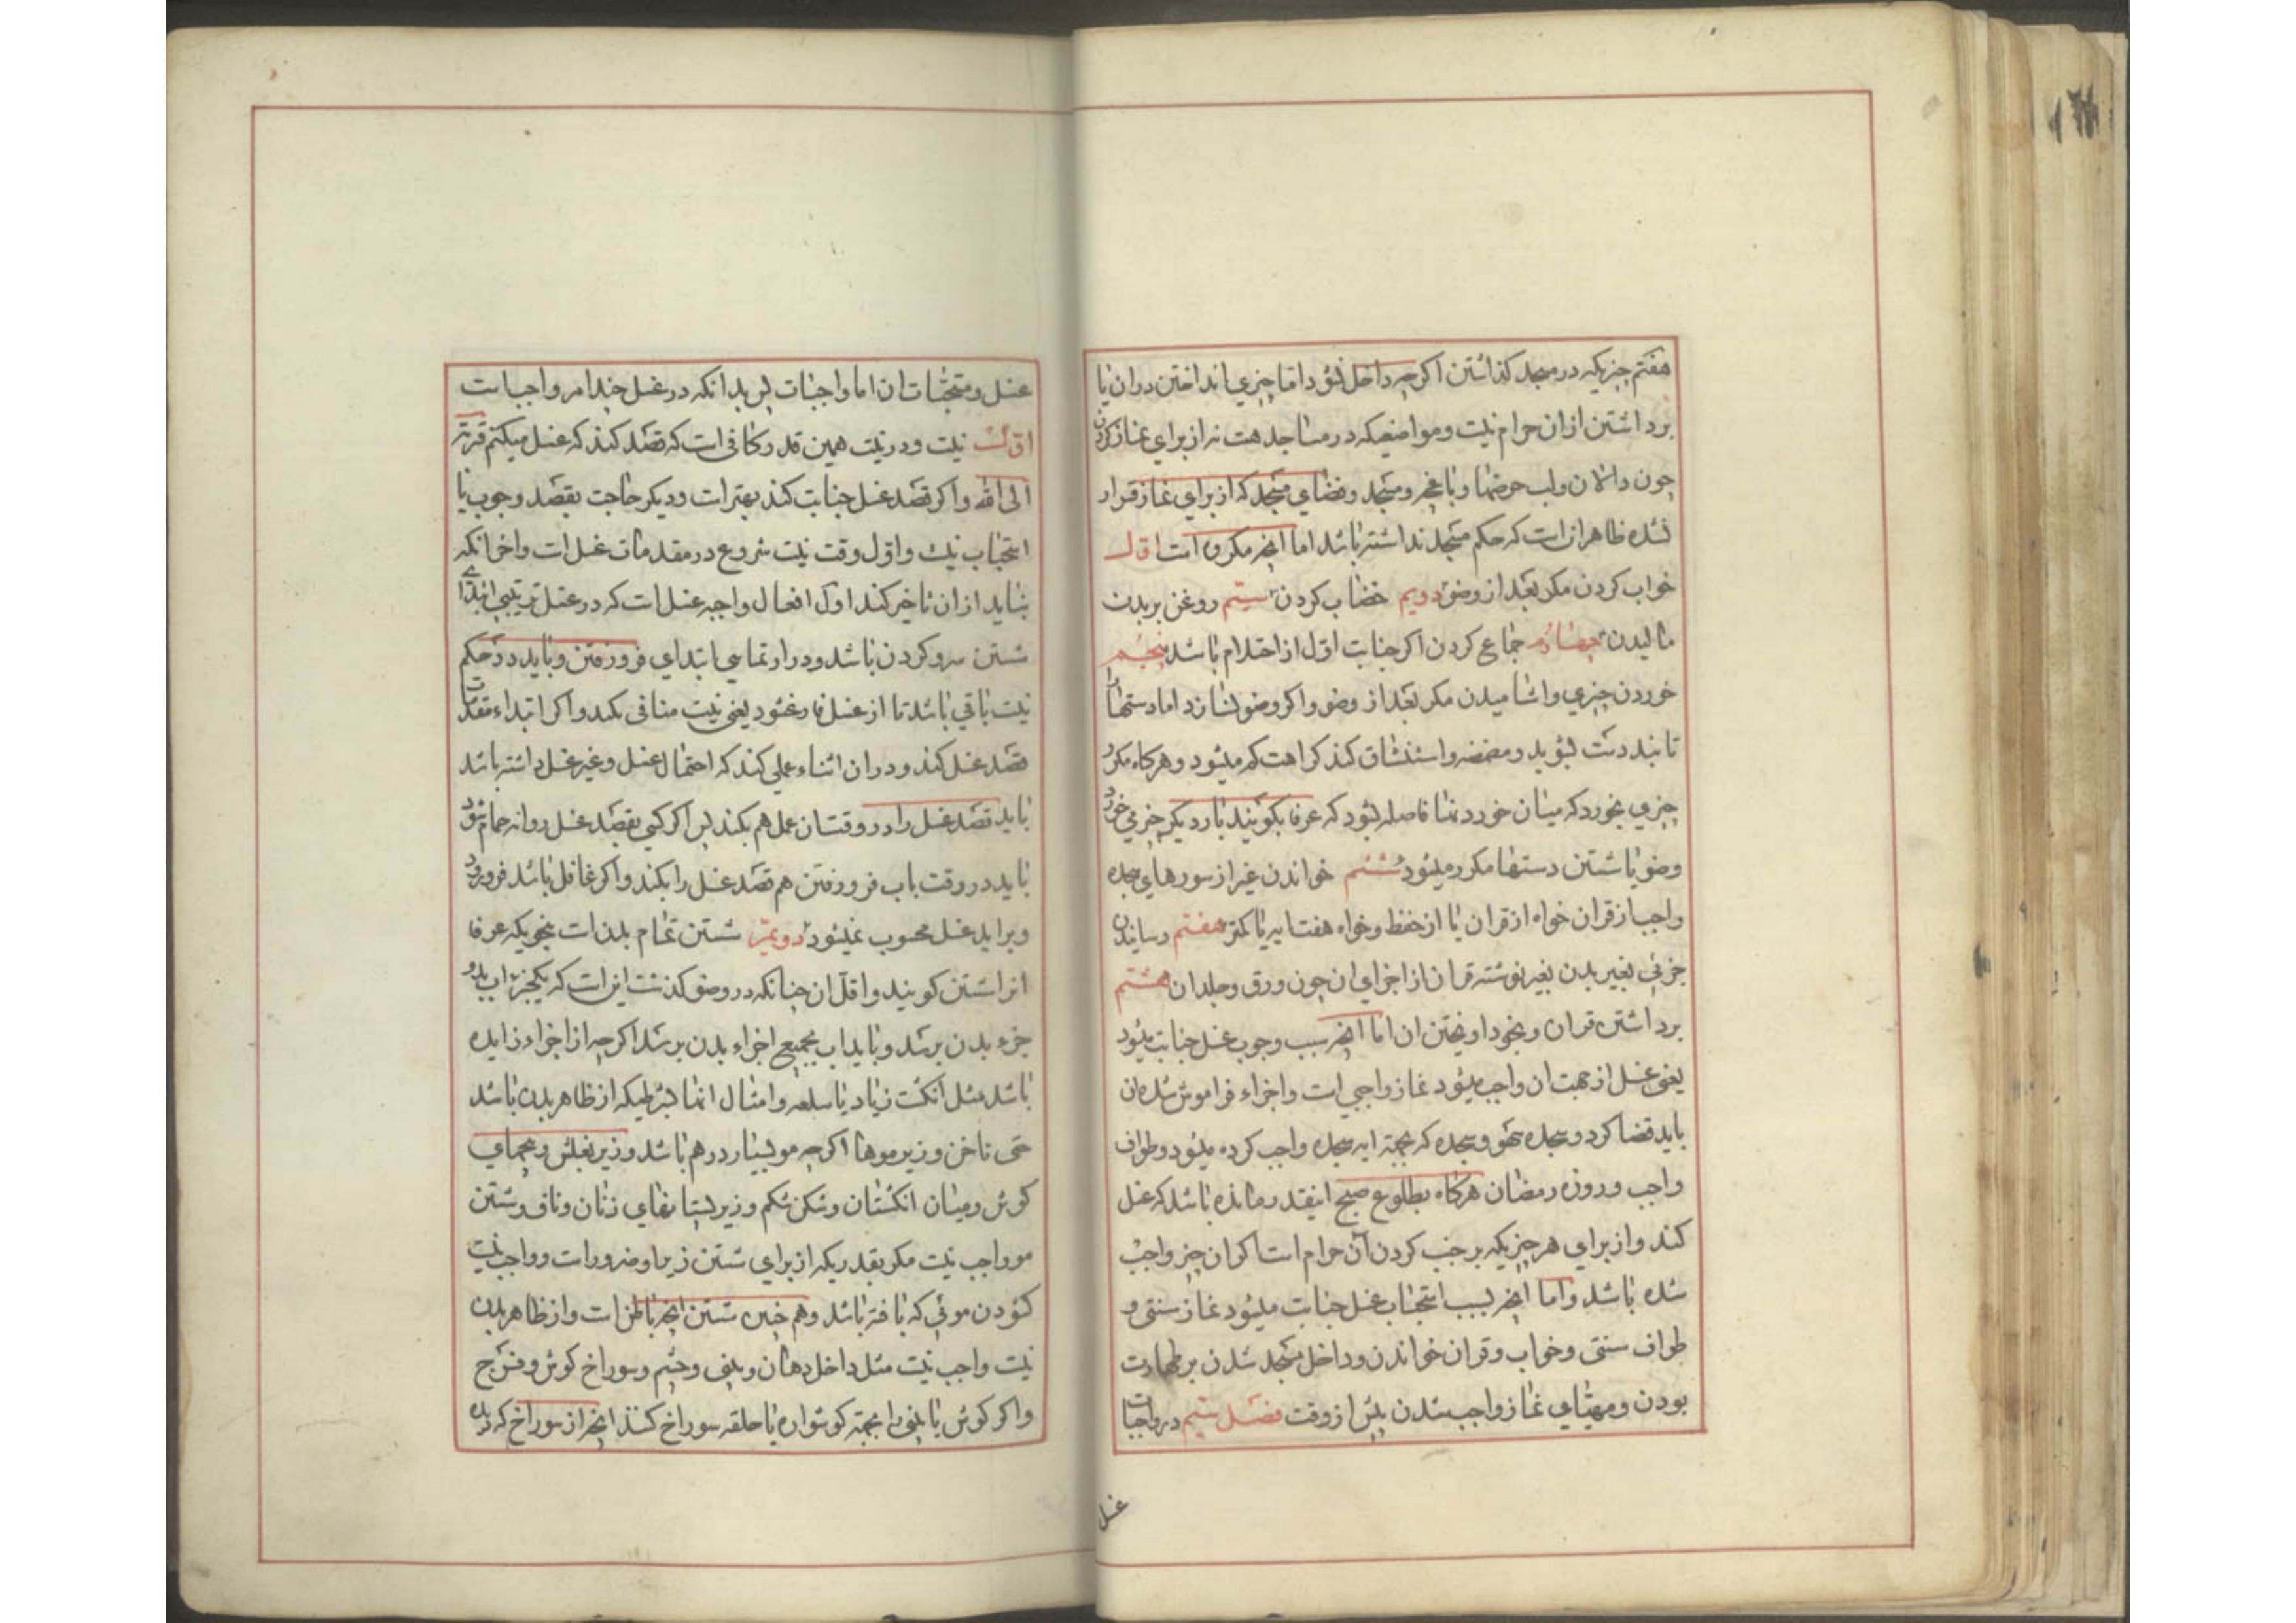 هفتم چیزیکه در مسجد کذاشتن اکرچه داخل نشود اما چیزی انداختن دران یا
برداشتن ازان حرام نیست و مواضعیکه در مساجد هست نه از برای نماز کردن
چون دالان ولب حوضها و باغچه و مسجد وفضای مسجد که از برای نماز قرار
نشده ظاهر انست که حکم مسجد نداشته باشد اما انچه مکروه است اول
خواب کردن مکر بعد از وضو دویم خضاب کردن سیم روغن بر بدن
مالیدن چهارم جماع کردن اکر جنابت اول از احتلام باشد پنجم
خوردن چیزی واشامیدن مکر بعد از وضو واکر وضو نسازد اما دستها را
تا بند دست بشوید و مضمضه و استنشاق کند کراهت کم میشود و هرکاه مکرر
چیزی بخورد که میان خوردنها فاصله بشود که عرفا بکویند بار دیکر چیزی خورد
وضو یا شستن دستها مکرر میشود ششم خواندن غیر از سورهای سجده
واجب از قران خواه از قران یا از حفظ و خواه هفت ایه یا کمتر هفتم رسانیدن
جزئی بغیر بدن بغیر نوشته قران از اجزای ان چون ورق و جلد ان هشتم
برداشتن قران و بخود اویختن ان اما انچه سبب وجوب غسل جنابت میشود
یعنی غسل از جهت ان واجب میشود نماز واجبی است واجزاء فراموش شده ان
باید قضا کرد و سجده سهو و سجده که بجهة ایه سجده واجب کرده میشود و طواف
واجب و روزه رمضان هرکاه بطلوع صبح اینقدر مانده باشد که غسل
کند و از برای هر چیزیکه بر جنب کردن آن حرام است اکر ان چیز واجب
شده باشد و اما انچه بسبب استحباب غسل جنابت میشود نماز سنتی و
طواف سنتی و خواب و قران خواندن و داخل مسجد شدن بر طهارت
بودن و مهیای نماز واجب شدن پیش از وقت فصل سیم در واجبات
غسل
غسل و مستحبات ان اما واجبات پس بدانکه در غسل چند امر واجب است
اول نیت و در نیت همین قدر کافی است که قصد کند که غسل میکنم قربة
الی الله و اکر قصد غسل جنابت کند بهتر است و دیکر حاجت بقصد وجوب یا
استحباب نیست و اول وقت نیت شروع در مقدمات غسل است و اخر انکه
نباید از ان تاخیر کند اول افعال واجبه غسل است که در غسل ترتیبی ابتدای
شستن سر و کردن باشد و در ارتماسی ابتدای فرو رفتن و باید در حکم
نیت باقی باشد تا از غسل فارغ شود یعنی نیت منافی نکند و اکر ابتداء مقدمات
قصد غسل کند و در ان اثناء عملی کند که احتمال غسل و غیر غسل داشته باشد
باید قصد غسل را در وقت ان عمل هم بکند پس اکر کسی بقصد غسل روانه حمام شود
باید در وقت باب فرو رفتن هم قصد غسل را بکند و اکر غافل باشد فرو رود
و براید غسل محسوب نمیشود دویم شستن تمام بدن است بنحویکه عرفا
انرا شستن کویند و اقل ان چنانکه در وضو کذشت این است که یکجزء اب بدو
جزء بدن برسد و باید اب بجمیع اجزاء بدن برسد اکرچه از اجزاء زایده
باشد مثل انکشت زیاد یا سلعه و امثال انها بشرطیکه از ظاهر بدن باشد
حتی ناخن و زیر موها اکرچه مو بسیار درهم باشد و زیر بغلش و عجمهای
کوش و میان انکشتان و شکن شکم و زیر پستانهای زنان و ناف و شستن
مو واجب نیست مکر بقدریکه از برای شستن زیر او ضرور است و واجب نیست
کشودن موئی که بافته باشد و هم چنین شستن انچه باطن است و از ظاهر بدن
نیست واجب نیست مثل داخل دهان و بینی و چشم و سوراخ کوش و فرج
و اکر کوش یا بینی را بجهة کوشواره یا حلقه سوراخ کنند انچه از سوراخ که دیده